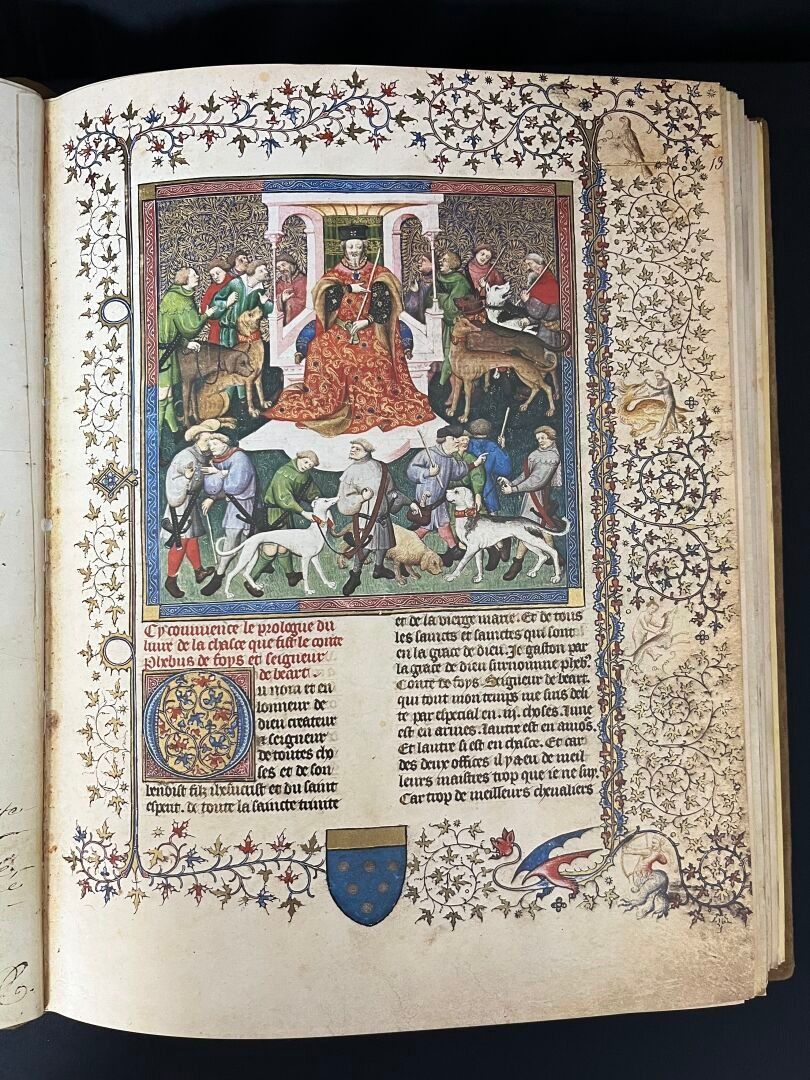 13
Cy commence le prologue du
liure de la chasce que fist le conte
phebus de foys et seigneur
de beart.
u nom et en
lonneur de
dieu createur
et seigneur
de toutes cho
ses et de son
benoist filz ihesucrist et du saint
esperit. de toute la saincte trinite
et de la vierge marie. Et de tous
les saincts et sainctes qui sont
en la grace de dieu. Je gaston par
la grace de dieu surnomme pheb9
Conte de foys. Seigneur de beart.
qui tout mon temps me suis deli
te par especial en .iij. choses. lune
est en armes. lautre est en amors.
Et lautre si est en chasce. Et car
des deux offices il ya eu de meil
leurs maistres trop que ie ne suy.
Car trop de meilleurs cheualiers